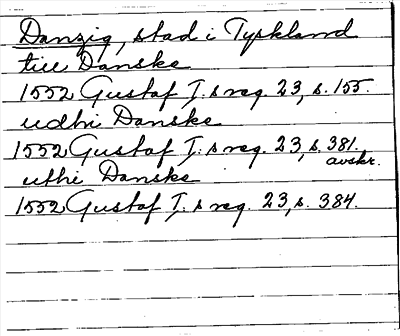 Danzig, stad i Tyskland
till Danske
1552 Gustaf I:s reg. 23, s. 155.
udhi Danske
1552 Gustaf I:s reg. 23, s. 381.
avskr.
uthi Danske
1552 Gustaf I:s reg. 23, s. 384.